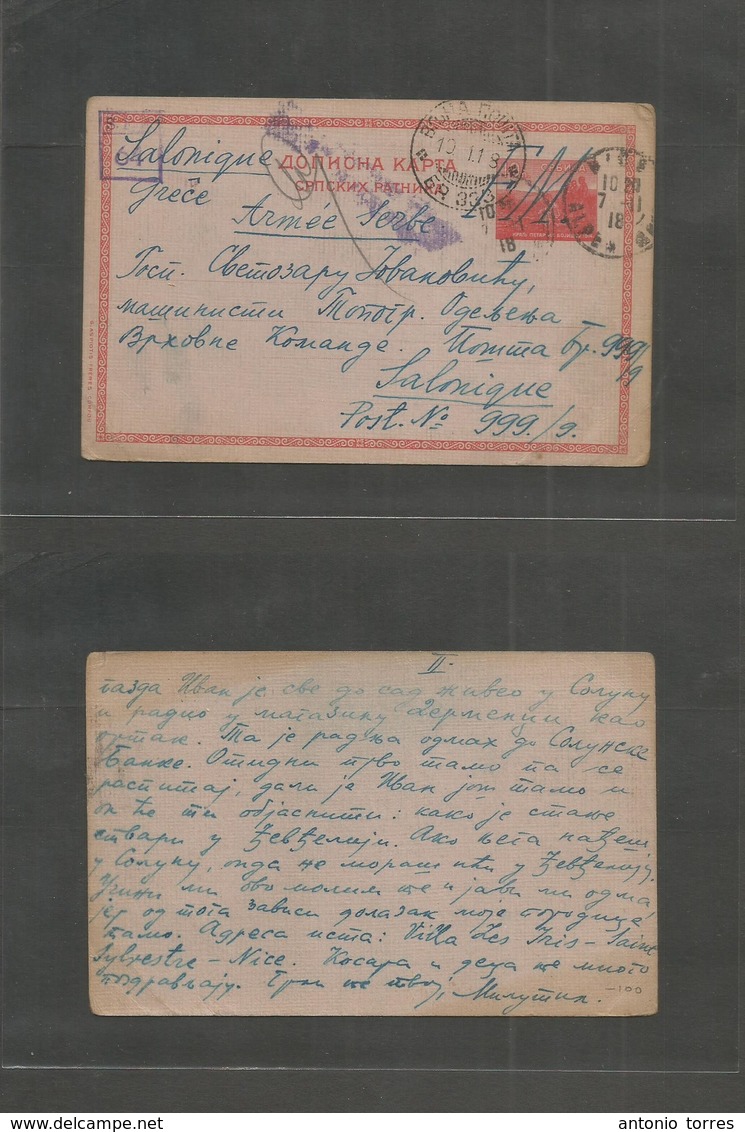 Salonique
Grèce
ДОПИСНА КАРТА
СРПСКИХ РАТНИКА
Armée Serbe
Госп. Светозару Јовановићу,
машинисти Топогр. Одељења
Врховне Команде. Пошта бр. 999/9
Salonique
Post. No 999/9.
II.
газда Иван је све до сад живео у Солуну
и радио у магазину Дерменџи као
ортак. Та је радња одмах до Солунске
Банке. Отидни прво тамо па се
распитај, да ли је Иван још тамо и
он ће ти објаснити: како је стање
ствари у Ђевђелији. Ако њега нађеш
у Солуну, онда не мораш ићи у Ђевђелију.
Учини ми ово молим те и јави ми одма
јер од тога зависи долазак моје породице
тамо. Адреса иста: Villa Les Iris - Saint
Sylvestre - Nice. Косара и деца те много
поздрављају. Грли те твој, Милутин.
-100
antonio torres